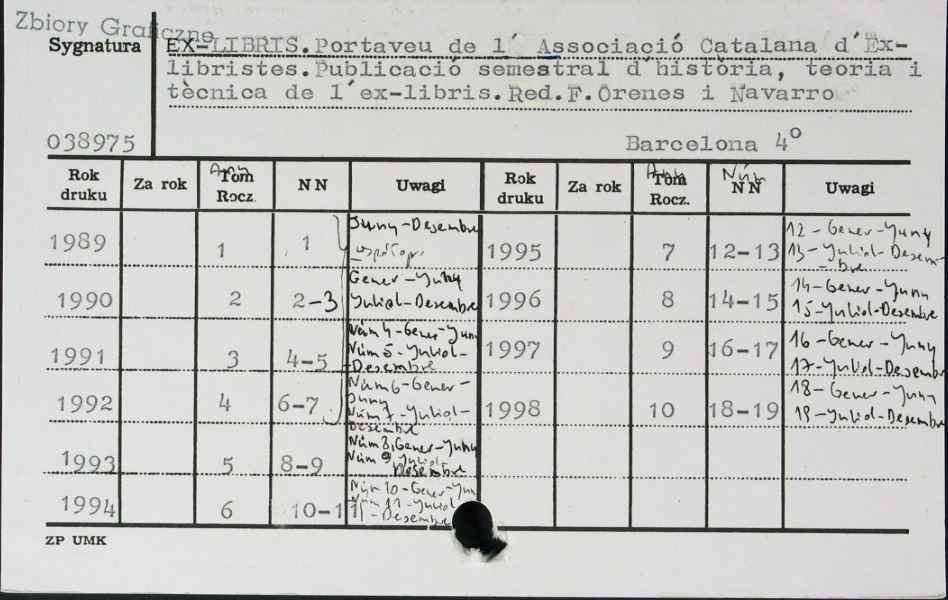 Zbiory Graficzne
Sygnatura
EX-LIBRIS.Portaveu de l´ Associació Catalana d´Ex-
libristes.Publicació semestral d´història, teoria i
tècnica de l´ex-libris.Red.F.Orenes i Navarro
038975 Barcelona 4º
Rok druku Za rok Any Tom Rocz. NN Uwagi Rok druku Za rok Any Tom Rocz. Núm NN Uwagi
1989 1 1 Juny-Desembre
współopr.
1990 2 2-3 Gener-Juny
Juliol-Desembre
1991 3 4-5 Núm 4-Gener-Juny
Núm 5-Juliol-
Desembre
1992 4 6-7 Núm 6-Gener-
Juny
Núm 7-Juliol-
Desembre
1993 5 8-9 Núm 8,Gener-Juny
Núm 9,Juliol-
Desembre
1994 6 10-11 Núm 10-Gener-Jun
Núm 11-Juliol
-Desembre
1995 7 12-13 12-Gener-Juny
13-Juliol-Desem-
-bre
1996 8 14-15 14-Gener-Juny
15-Juliol-Desembre
1997 9 16-17 16-Gener-Juny
17-Juliol-Desembr
1998 10 18-19 18-Gener-Juny
19-Juliol-Desembre
ZP UMK